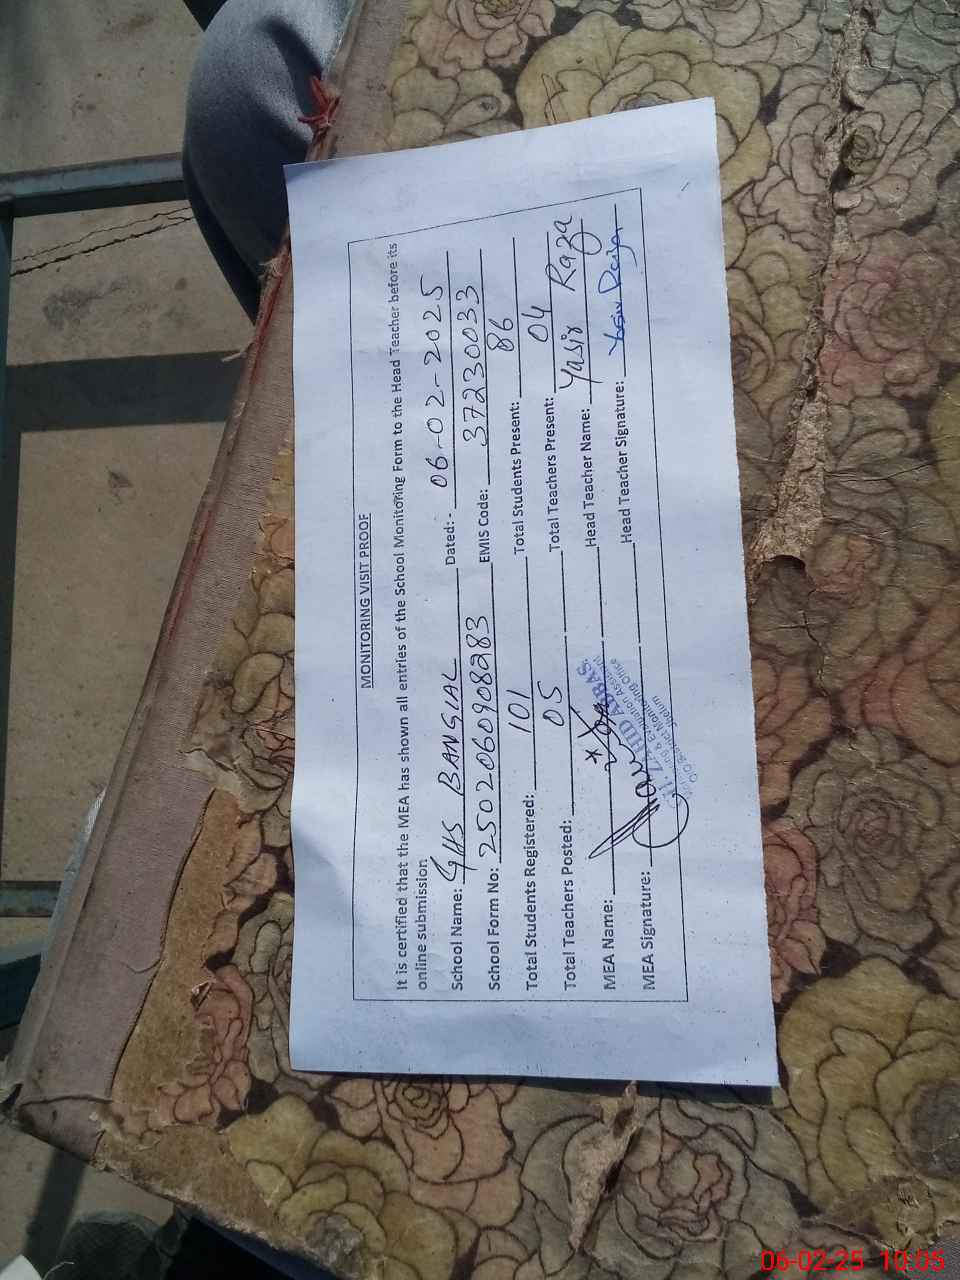 MONITORING VISIT PROOF
It is certified that the MEA has shown all entries of the School Monitoring Form to the Head Teacher before its
online submission
School Name: GHS BANGIAL Dated: - 06-02-2025
School Form No: 2502060908283 EMIS Code: 37230033
Total Students Registered: 101 Total Students Present: 86
Total Teachers Posted: 05 Total Teachers Present: 04
MEA Name: Head Teacher Name: Yasir Raza
MEA Signature: Head Teacher Signature:
ZAHID ABBAS
Monitoring & Evaluation Assistant
O/O District Monitoring Office
Jhelum
06-02-25 10:05